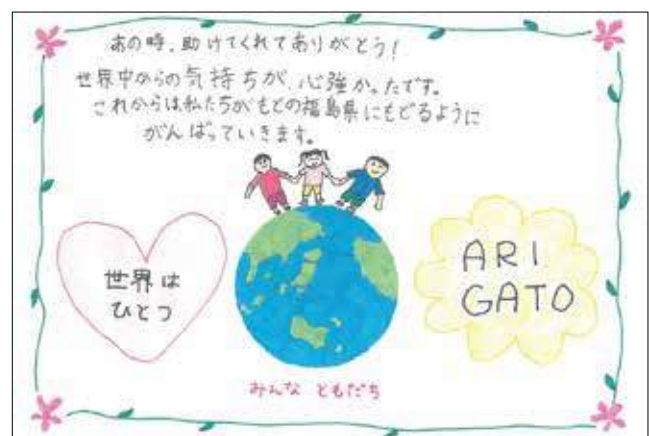 あの時、助けてくれてありがとう!
世界中からの気持ちが、心強かったです。
これからは私たちがもとの福島県にもどるように
がんばっていきます。
世界は
ひとつ
ARI
GATO
みんな ともだち